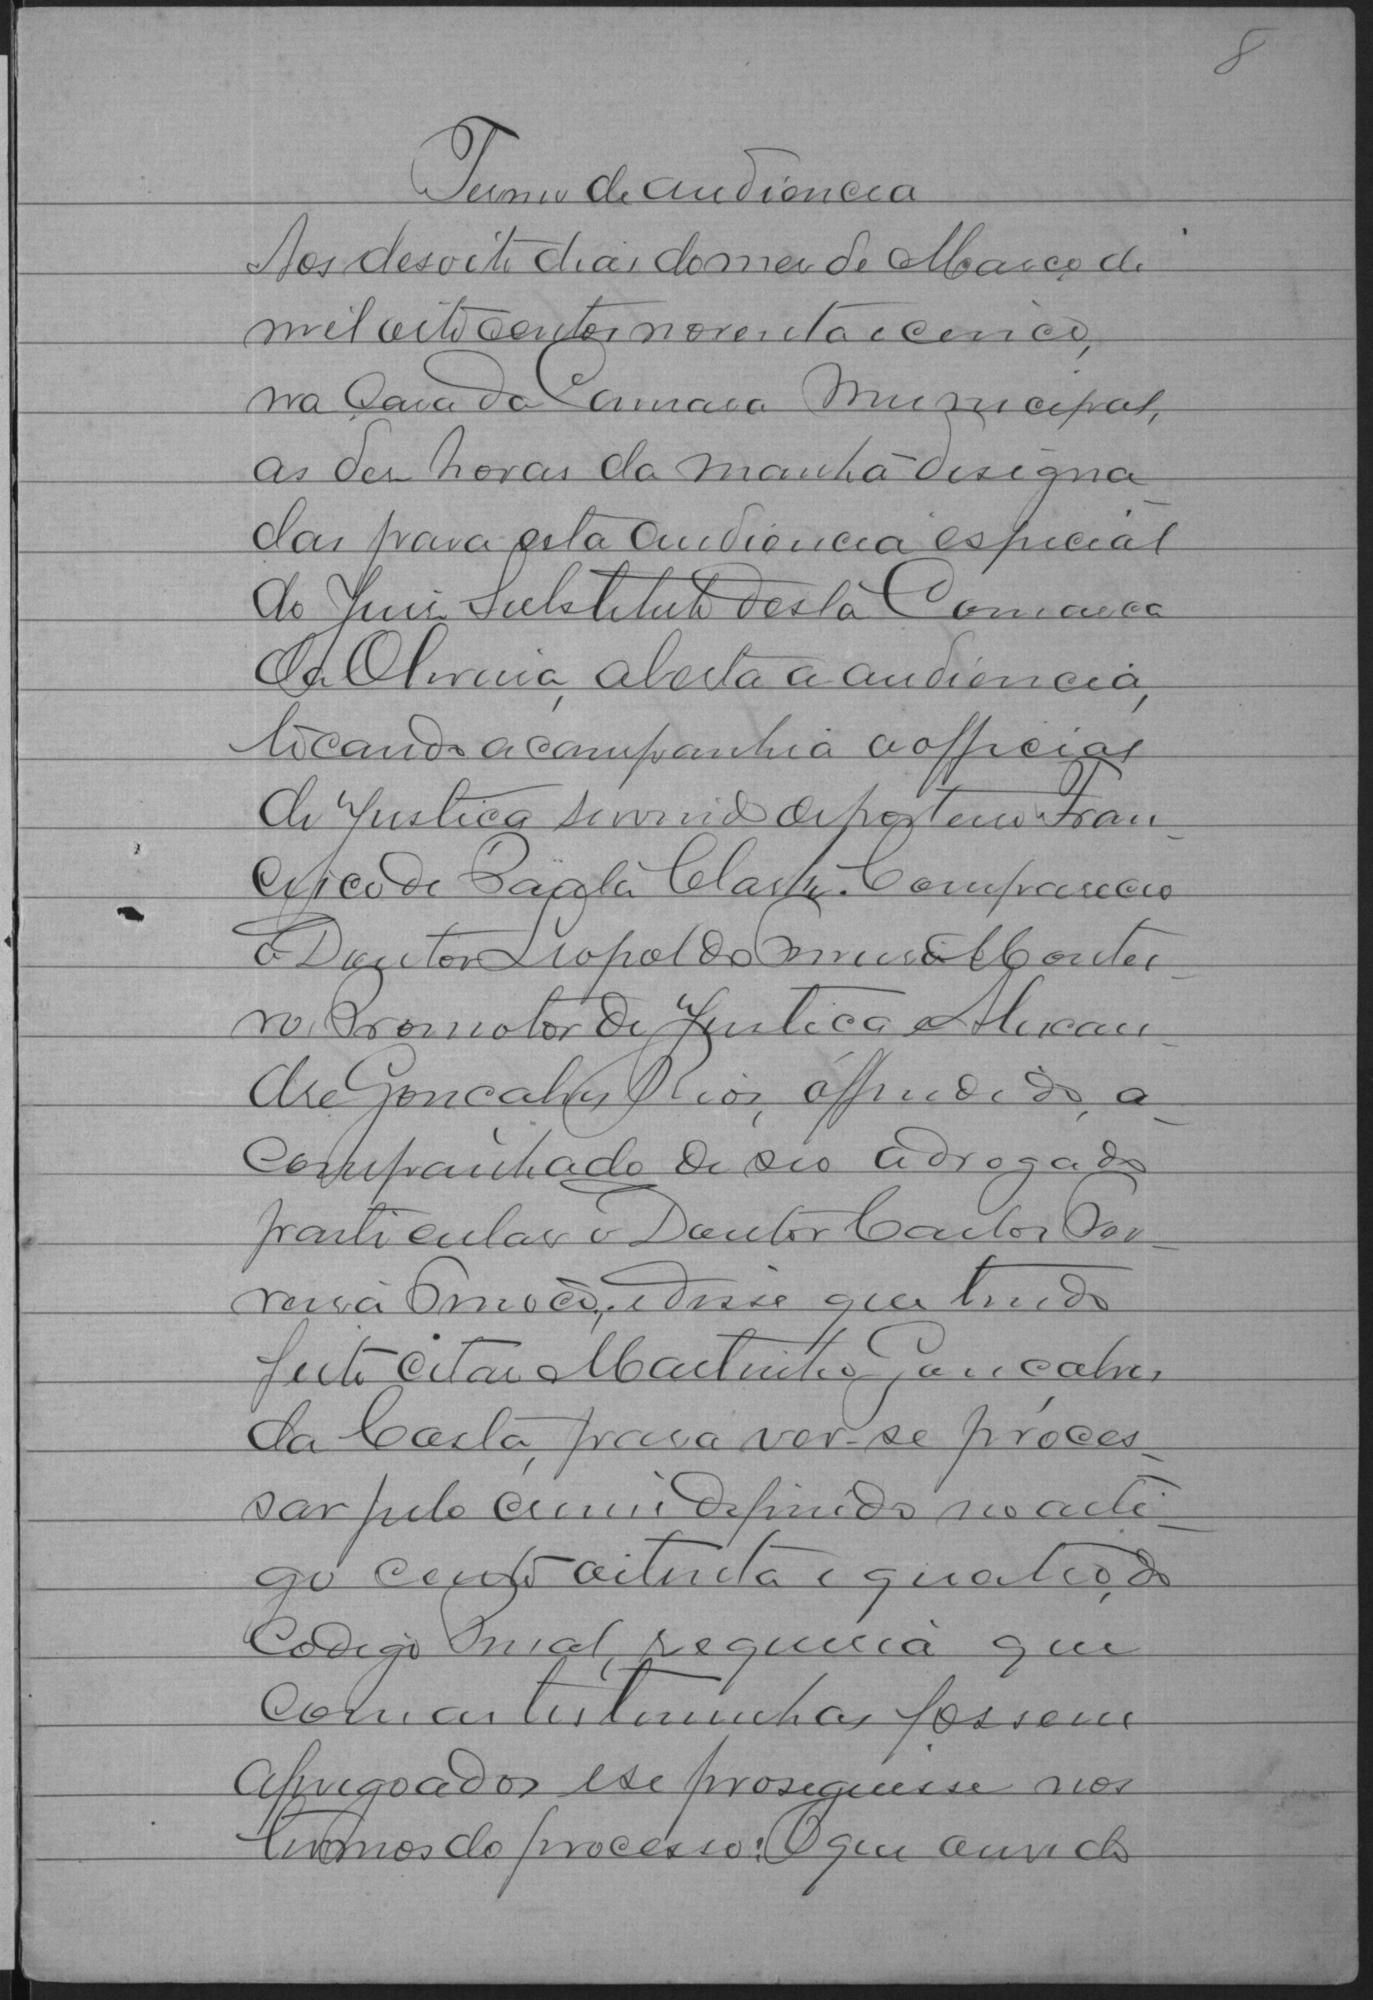 8
Termo de audiencia
Aos desoito dias do mes de Março de
mil oitocentos noventa e cinco,
na Casa da Camara Municipal,
as des horas da manhã designa-
das para esta audiencia especial
do Juis Substituto desta Comarca
da Oliveira, aberta a audiencia,
tocando a campanhia o official
de Justiça servindo de porteiro Fran-
cisco de Paula Clark. Compareceo
o Doutor Leopoldo Monte-
ro, Promotor de Justiça e Alexan-
dre Gonçalves Rios, offendido, a-
companhado de seo advogado
particular o Doutor Carlos Fer-
reira e disse que tendo
feito citar Martinho Gonçalves
da Costa, para ver-se proces-
sar pelo crime definido no arti-
go cento oitenta e quatro, do
Codigo Penal, requeria que
com as testemunhas fossem
apregoados e se proseguisse nos
termos do processo: O que ouvido